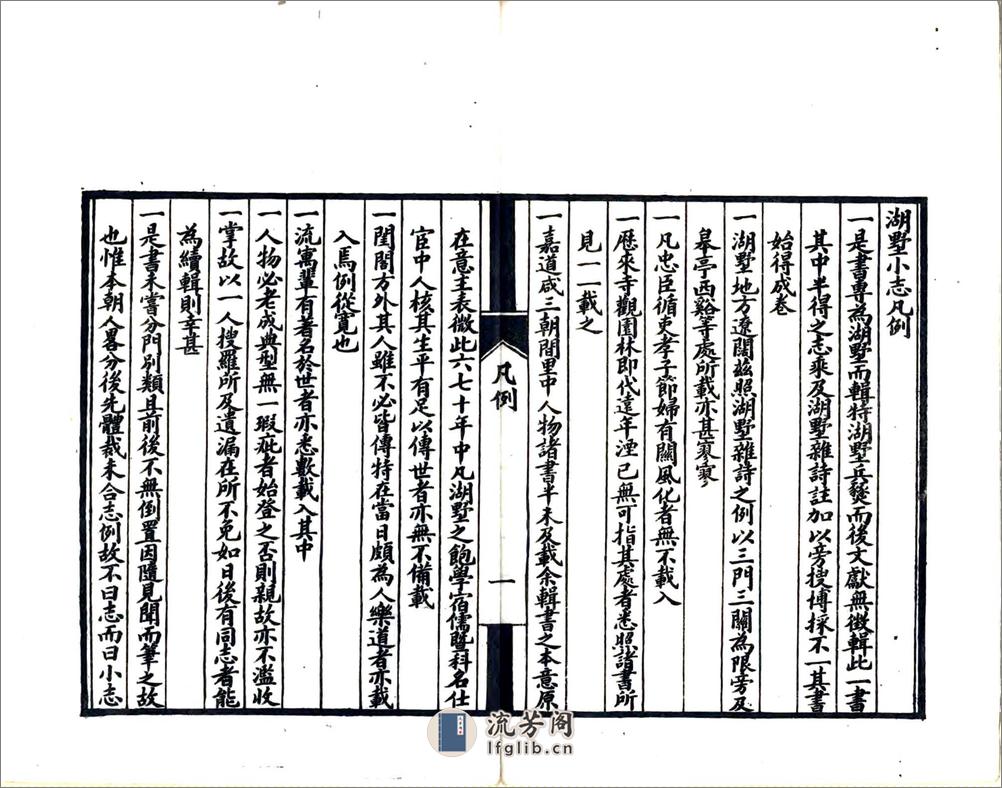 湖墅小志凡例
一是書專為湖墅而輯特湖墅兵燹而後文獻無徵輯此一書
其中半得之志乘及湖墅雜詩註加以旁搜博採不一其書
始得成卷
一湖墅地方遼闊茲照湖墅雜詩之例以三門三關為限旁及
皋亭西谿等處所載亦甚寥寥
一凡忠臣循吏孝子節婦有關風化者無不載入
一歷來寺觀園林即代遠年湮已無可指其處者悉照諸書所
見一一載之
一嘉道咸三朝間里中人物諸書半未及載余輯書之本意原
凡例
一
在意主表微此六七十年中凡湖墅之飽學宿儒暨科名仕
宦中人核其生平有足以傳世者亦無不備載
一閨閣方外其人雖不必皆傳特在當日頗為人樂道者亦載
入焉例從寬也
一流寓輩有著名於世者亦悉數載入其中
一人物必老成典型無一瑕疵者始登之否則親故亦不濫收
一掌故以一人搜羅所及遺漏在所不免如日後有同志者能
為續輯則幸甚
一是書未嘗分門別類且前後不無倒置因隨見聞而筆之故
也惟本朝人畧分後先體裁未合志例故不曰志而曰小志
流芳阁
lfglib.cn